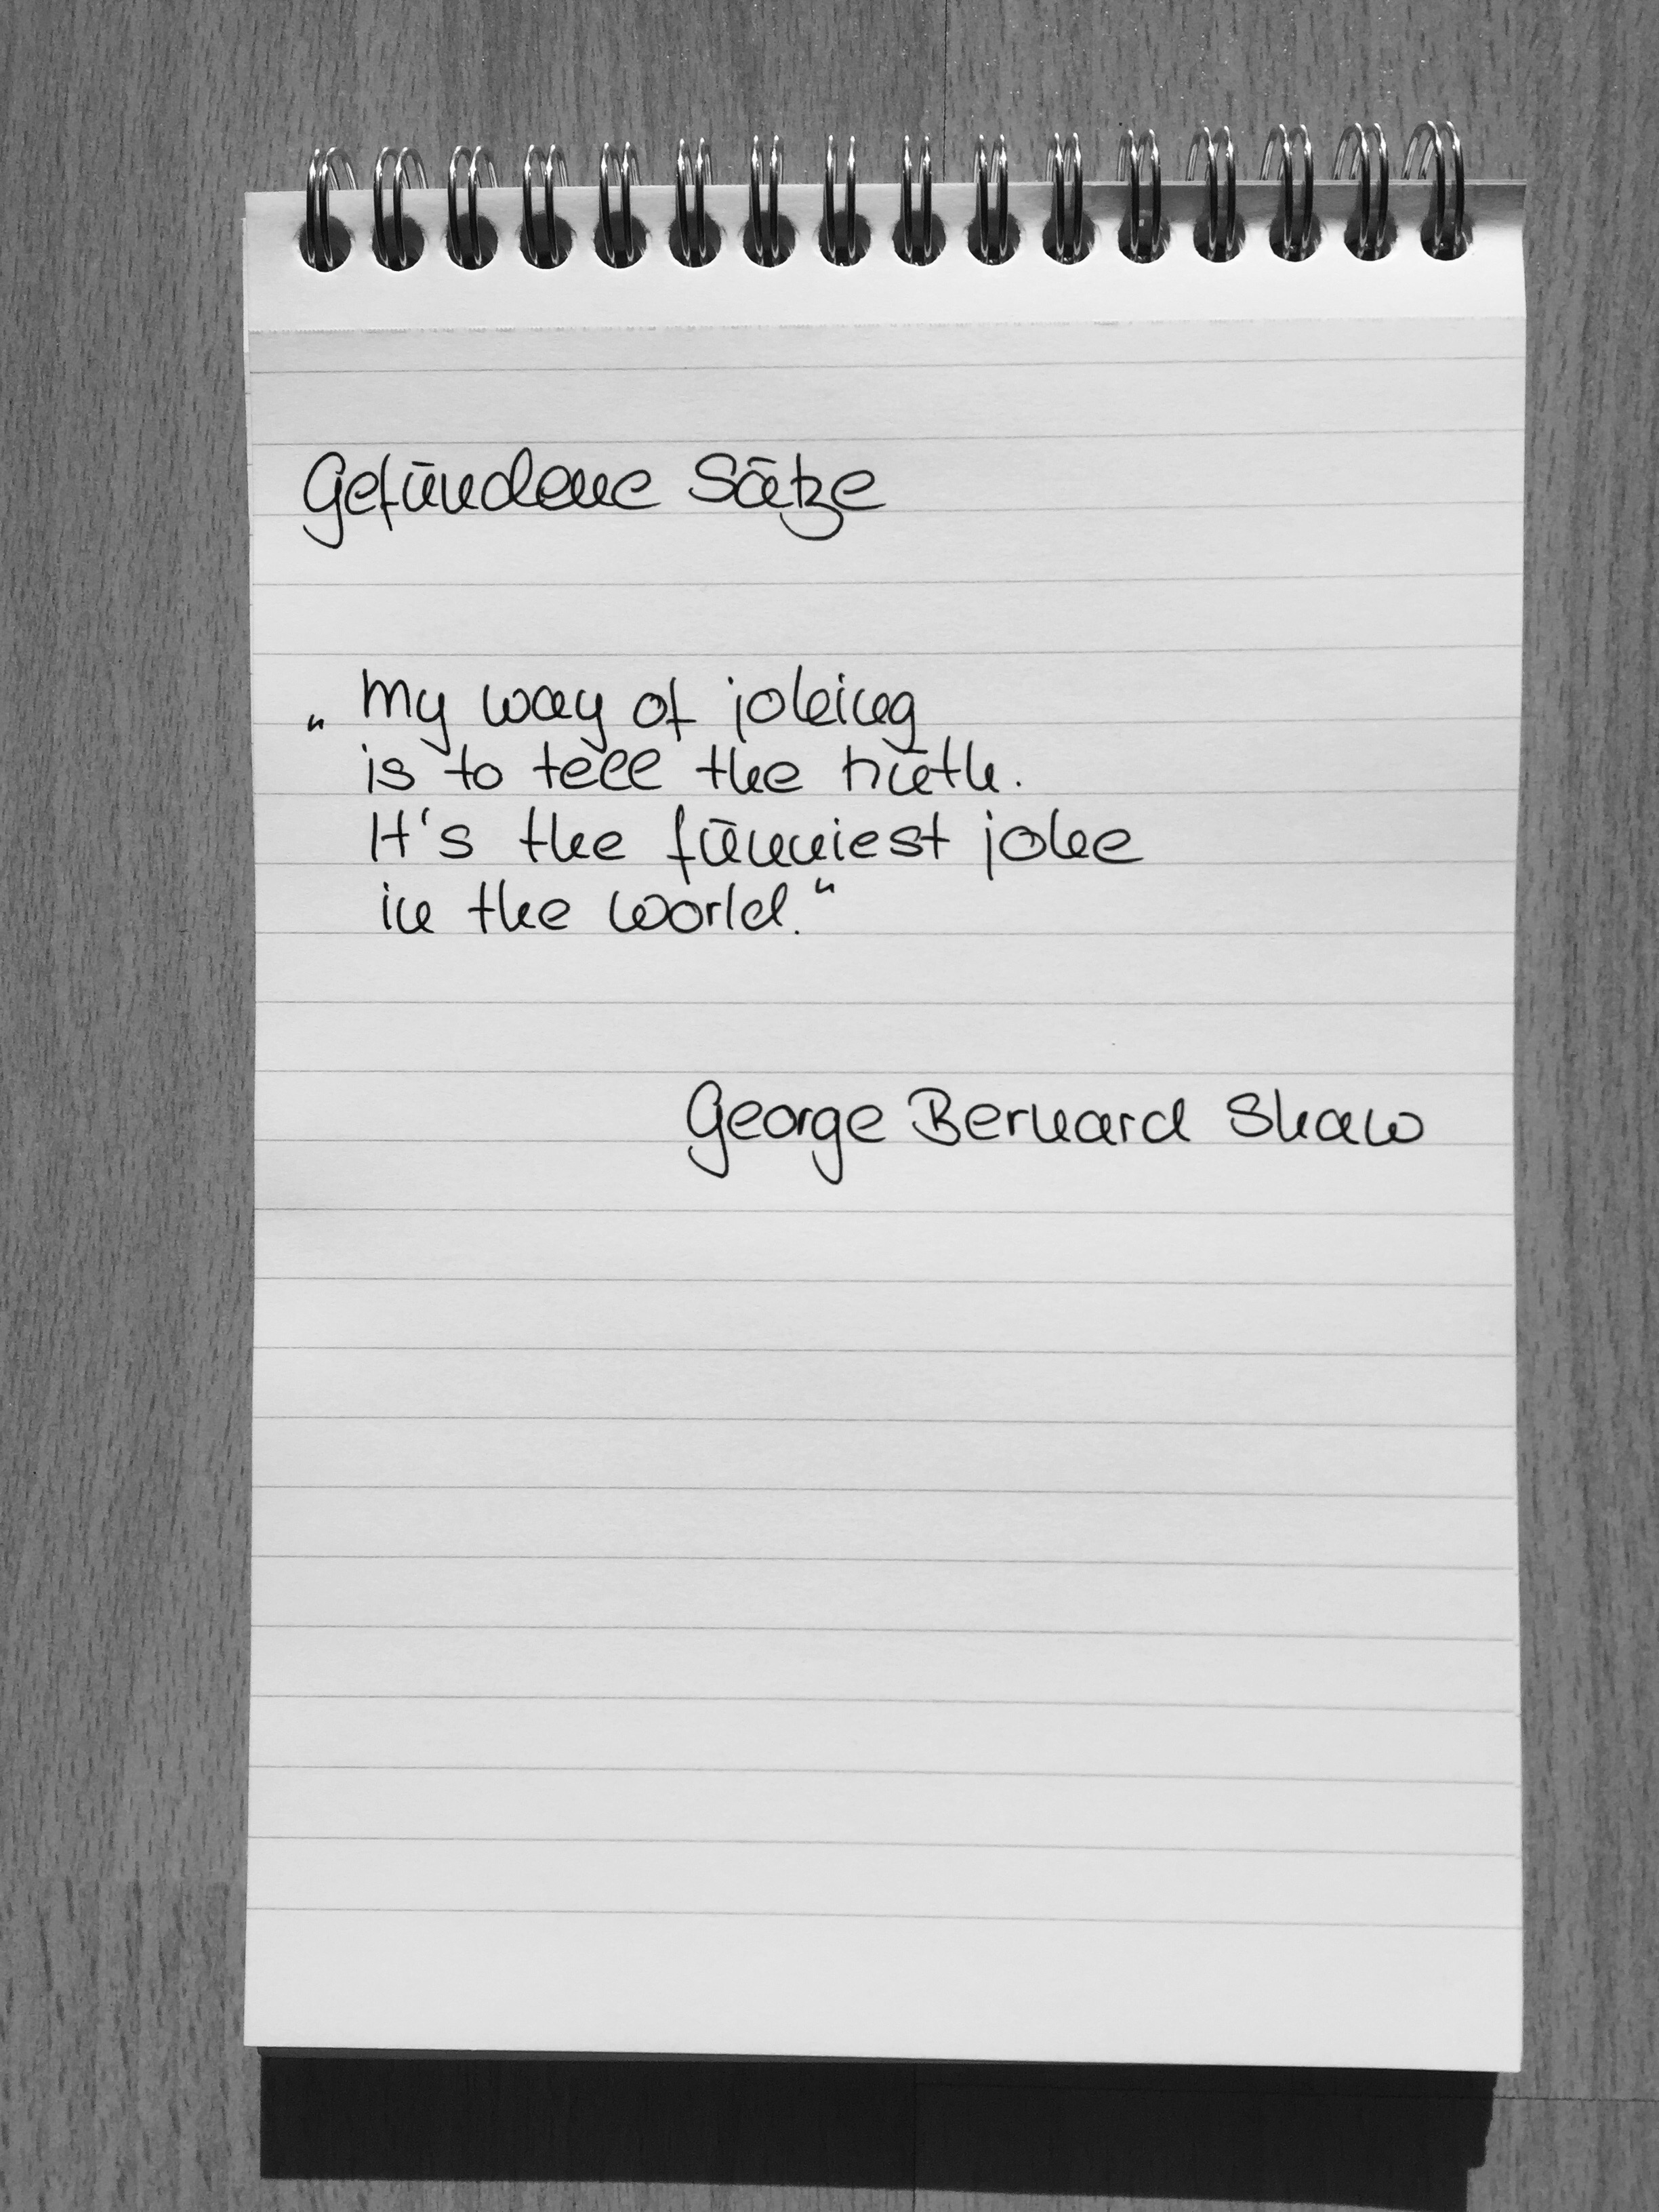 Gefundene Sätze
„My way of joking
is to tell the truth.
It's the funniest joke
in the world.“
George Bernard Shaw